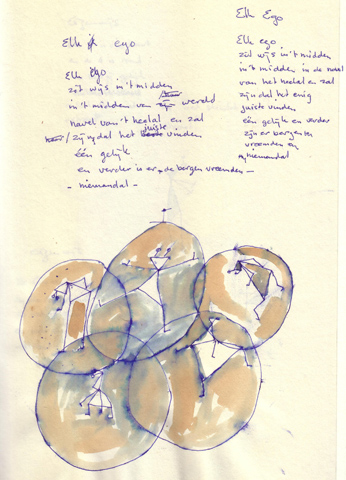 Elk ik ego
Elk Ego
zit wijs in 't midden
in 't midden van zijn wereld
navel van 't heelal en zal
zijn dal het juiste vinden
één gelijk
en verder is er de bergen vreemden
- niemandal -
Elk Ego
Elk ego
zit wijs in 't midden
in 't midden in de navel
van het heelal en zal
zijn dal het enig
juiste vinden
één gelijk en verder
zijn er bergen
vreemden en
niemandal